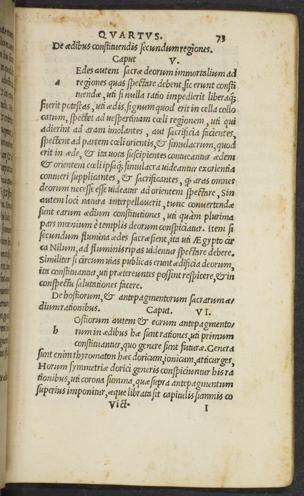 QVARTVS. 73
De ædibus constituendis secundum regiones.
Caput V.
Edes autem sacræ deorum immortalium ad
a regiones quas spectare debent, sic erunt consti
tuendæ, uti si nulla ratio impedierit liberaq;
fuerit potestas, uti ædis, signum quod erit in cella collo
catum, spectet ad uespertinam cœli regionem, uti qui
adierint ad aram imolantes, aut sacrificia facientes,
spectent ad partem cœli orientis, & simulacrum, quod
erit in æde, & ita uota suscipientes contueantur ædem
& orientem cœli ipsaq; simulacra uideantur exorientia
contueri supplicantes, & sacrificantes, q aras omnes
deorum necesse esse uideatur ad orientem spectare. Sin
autem loci natura interpellauerit, tunc conuertendæ
sunt earum ædium constitutiones, uti quàm plurima
pars mœnium è templis deorum conspiciatur. Item si
secundum flumina ædes sacræ fient, ita uti Ægypto cir
ca Nilum, ad fluminis ripas uidentur spectare debere.
Similiter si circum uias publicas erunt ædificia deorum,
ita constituantur, uti prætereuntes possint respicere, & in
conspectu salutationes facere.
De hostiorum, & antepagmentorum sacrarum æ
dium rationibus. Caput. VI.
Ostiorum autem & eorum antepagmento
h rum in ædibus hæ sunt rationes, uti primum
constituantur, quo genere sunt futuræ. Genera
sunt enim thyromaton hæc doricum, ionicum, atticurges,
Horum symmetriæ dorici generis conspiciuntur his ra
tionibus, uti corona summa, quæ supra antepagmentum
superius imponitur, æque librata sit capitulis summis co
Vict. I